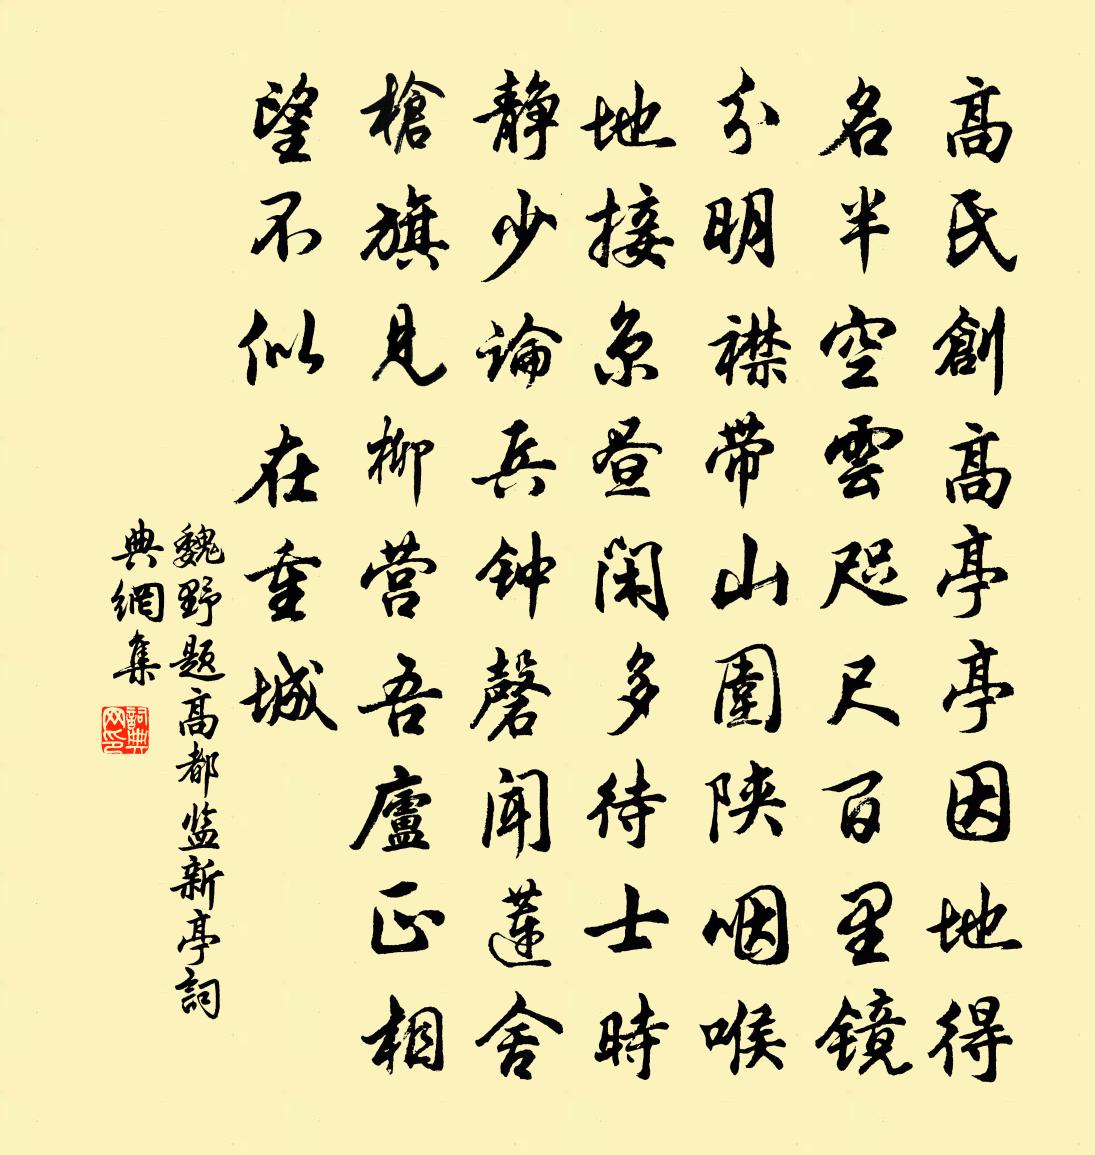 高民創高亭亭因地得
名半空雲咫尺百里镜
分明襟带山圍陕咽喉
地接京昼闲多待士時
静少論兵钟磬闻蓮舍
槍旗見柳营吾廬正相
望不似在重城
魏野题高都监新亭詞
典網集
詞典网印